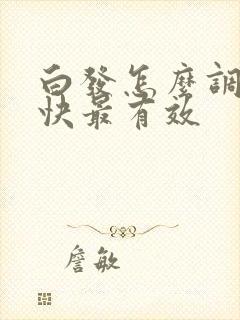 白發怎麼調
快最有效
詹敏